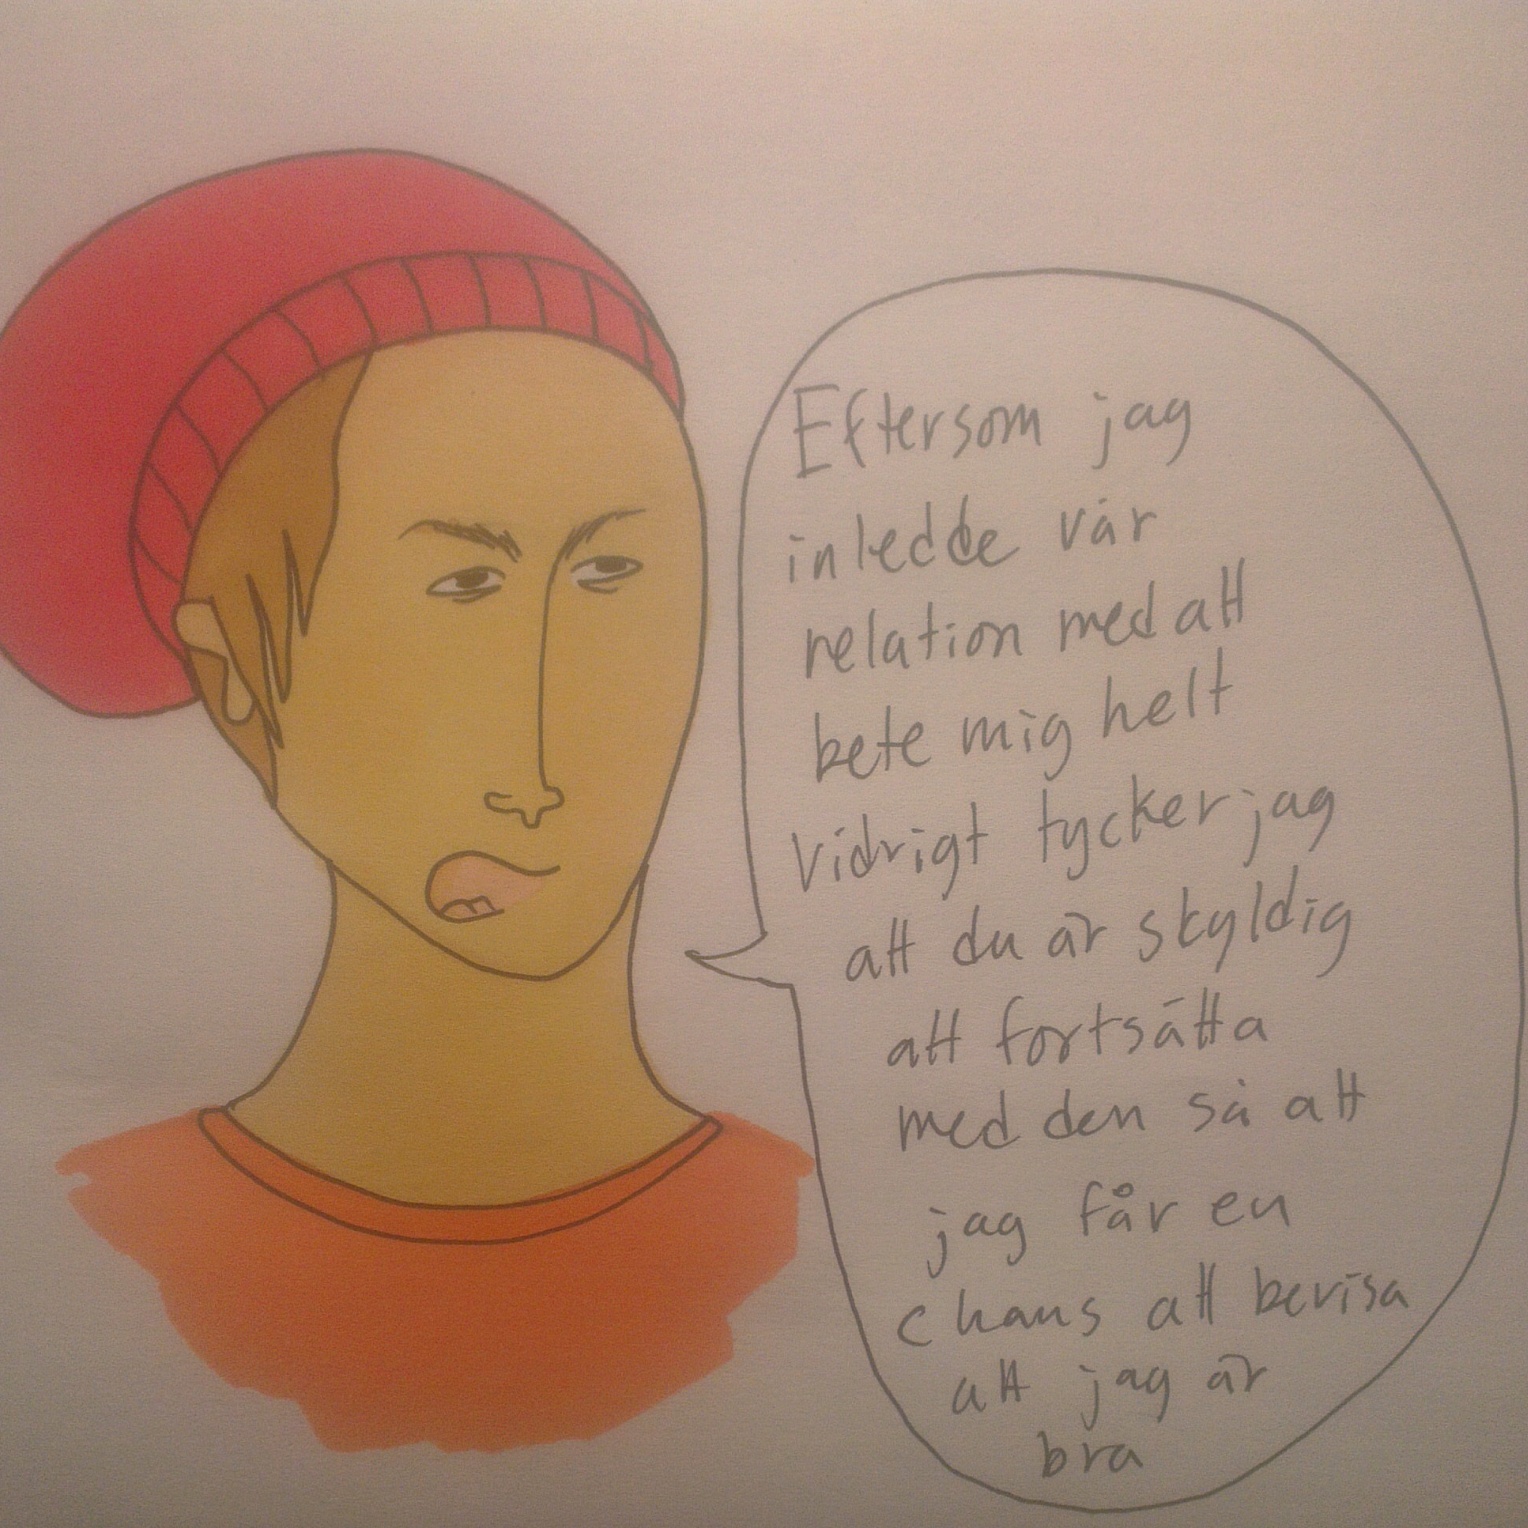 Eftersom jag
inledde vår
relation med att
bete mig helt
vidrigt tycker jag
att du är skyldig
att fortsätta
med den så att
jag får en
chans att bevisa
att jag är
bra